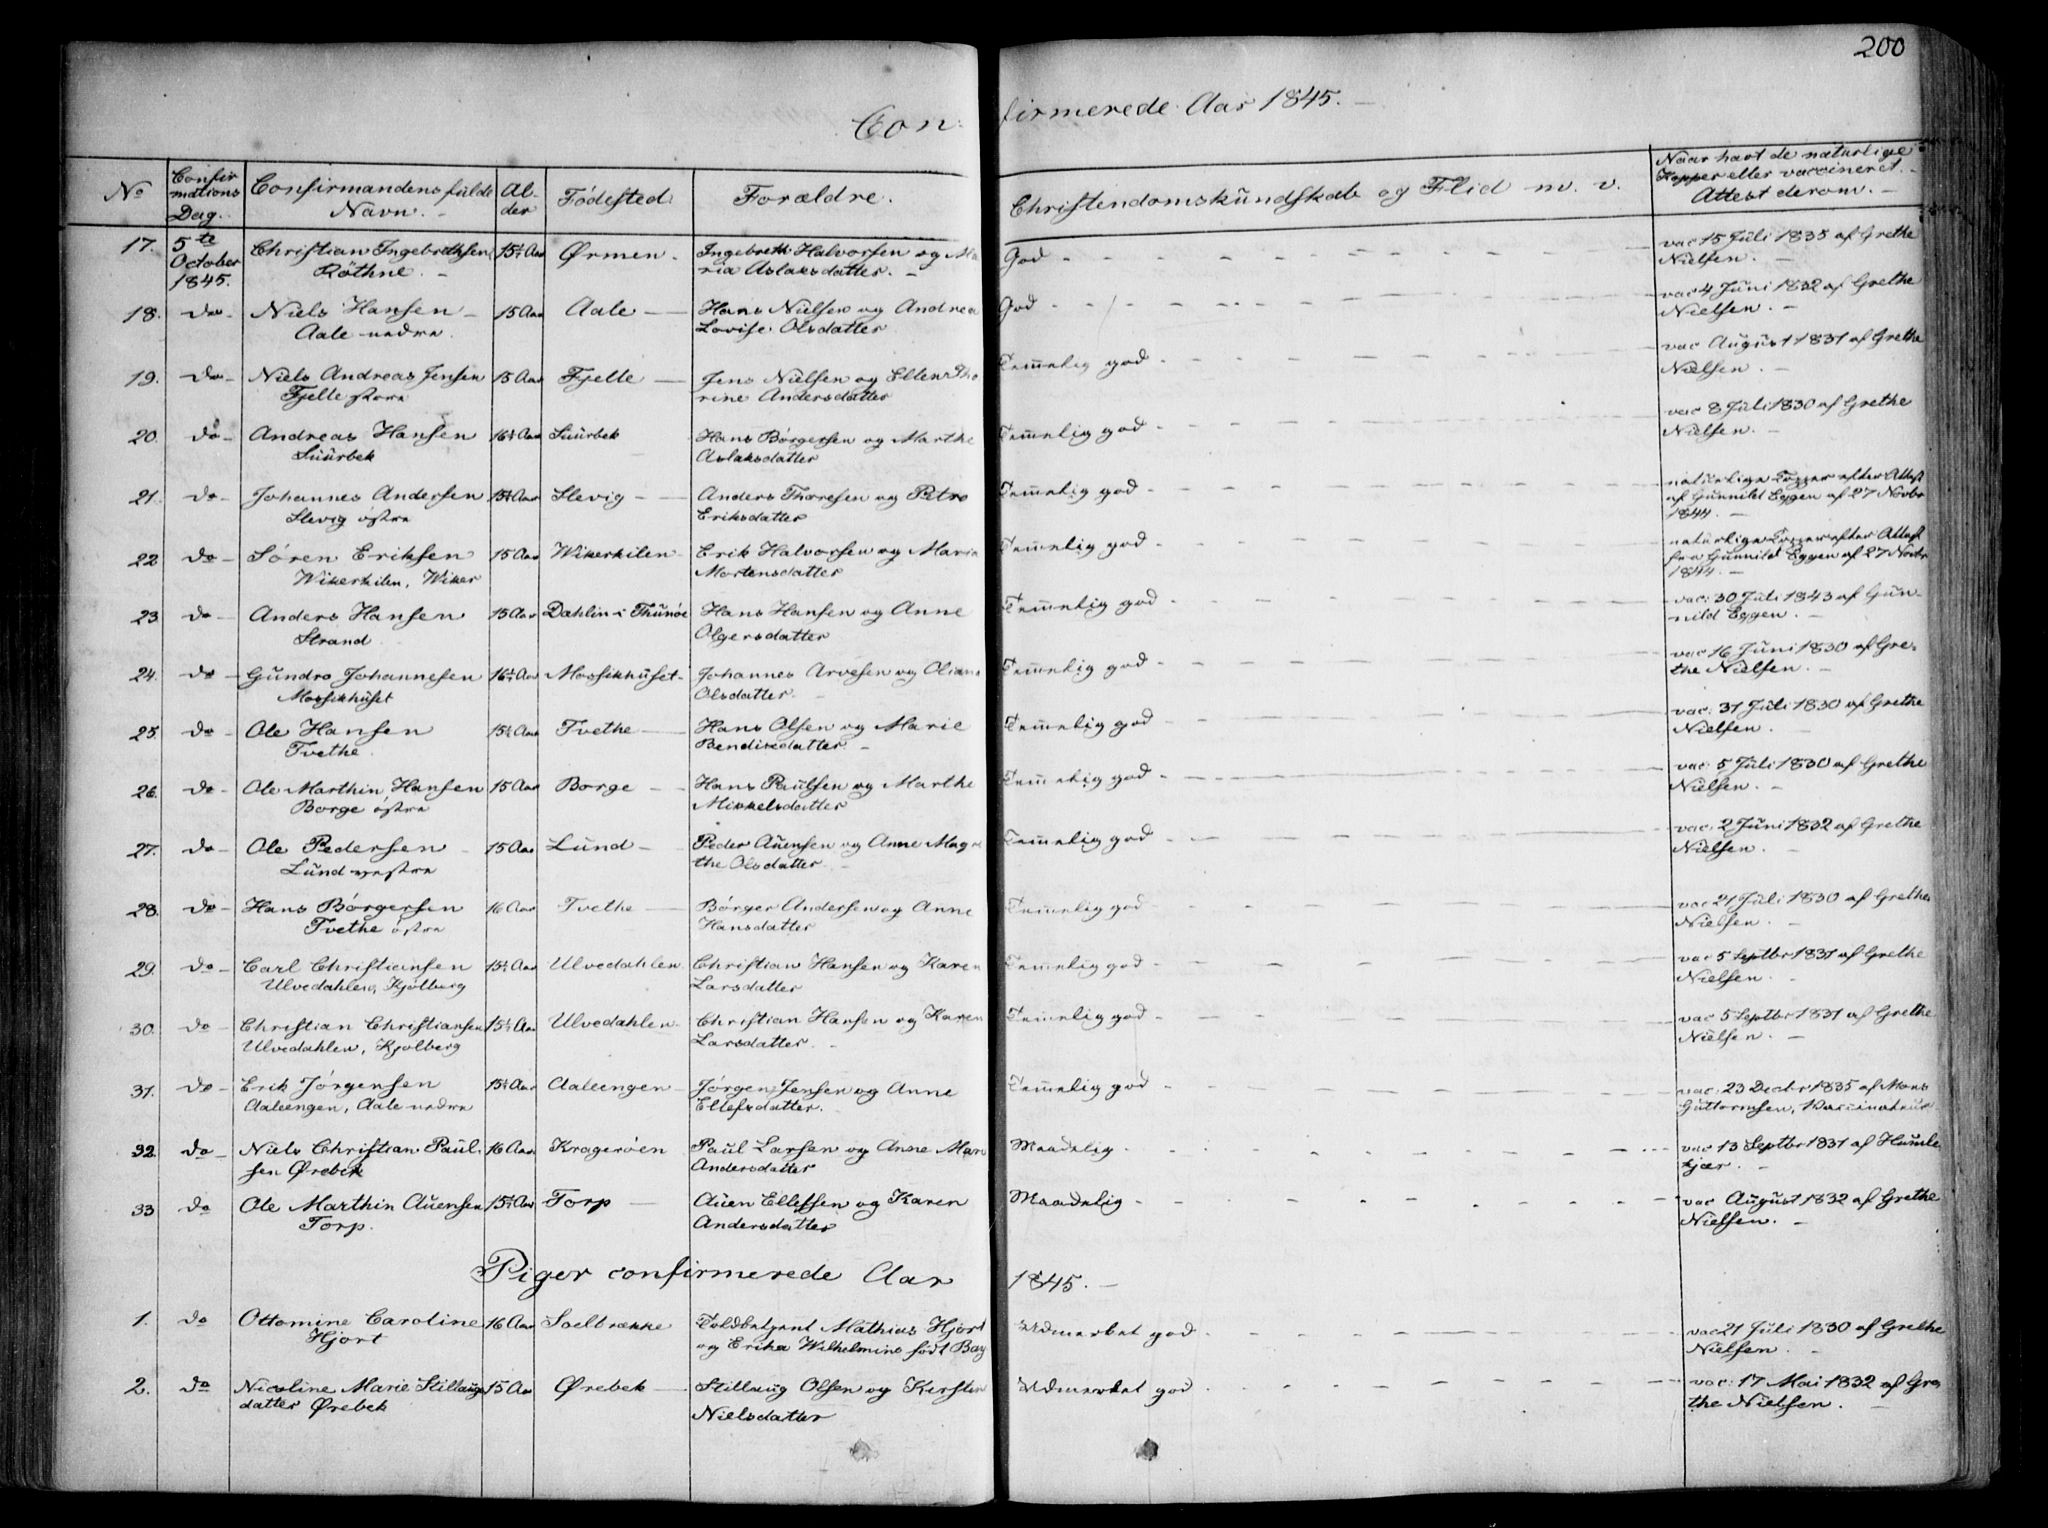 200
Confirmerede Aar 1845.
No | Confirmations Dag. | Confirmandens fulde Navn. | Alder | Fødested | Forældre. | Christendomskundskab og Flid m. v. | Naar havt de naturlige Kopper eller vaccineret. Attest derom.
17. | 5te October 1845. | Christian Ingebrethsen Röthne. | 15½ Aar | Ørmen | Ingebreth Halvorsen og Maria Aslaksdatter. | God | vac 15 Juli 1835 af Grethe Nielsen.
18. | do | Niels Hansen Aale nedre. | 15 Aar | Aale | Hans Nielsen og Andrea Lovise Olsdatter | God | vac 4 Juni 1832 af Grethe Nielsen.
19. | do | Niels Andreas Jensen Fjelle store | 15 Aar | Fjelle | Jens Nielsen og Ellen Thorine Andersdatter | Temmelig god | vac August 1831 af Grethe Nielsen.
20. | do | Andreas Hansen Suurbek | 16½ Aar | Suurbek | Hans Börgersen og Marthe Aslaksdatter | Temmelig god | vac 8 Juli 1830 af Grethe Nielsen.
21. | do | Johannes Andersen Slevig östre | Aar | Slevig | Anders Thoresen og Petro Eriksdatter | Temmelig god | naturlige Kopper efter Attest af Gunnild Eggen af 27 Novbr 1844.
22 | do | Sören Eriksen Wikerkilen, Wiker | 15 Aar | Wikerkilen | Erik Halvorsen og Maria Mortensdatter | Temmelig god | naturlige Kopper efter Attest fra Gunnild Eggen af 27 Novbr 1844.
23 | do | Anders Hansen Strand | 15 Aar | Dahlin i Thunöe | Hans Hansen og Anne Olgersdatter | Temmelig god | vac: 30 Juli 1843 af Gunnild Eggen.
24. | do | Gundro Johannesen Mossikhuset | 16½ Aar | Mossikhuset | Johannes Arvesen og Oliana Olsdatter | Temmelig god | vac 16 Juni 1830 af Grethe Nielsen.
25. | do | Ole Hansen Tvethe. | 15½ Aar | Tvethe | Hans Olsen og Marie Bendixedatter | Temmelig god | vac: 31 Juli 1830 af Grethe Nielsen.
26 | do | Ole Marthin Hansen Borge östre | 15 Aar | Borge | Hans Paulsen og Marthe Mikkelsdatter | Temmelig god | vac: 5 Juli 1830 af Grethe Nielsen.
27. | do | Ole Pedersen Lund vestre | 15 Aar | Lund | Peder Auensen og Anne Magrethe Olsdatter | Temmelig god | vac: 2 Juni 1832 af Grethe Nielsen.
28. | do | Hans Börgersen Tvethe östre | 16 Aar | Tvethe | Börger Andersen og Anne Hansdatter | Temmelig god | vac 21 Juli 1830 af Grethe Nielsen.
29. | do | Carl Christiansen Ulvedahlen, Kjölberg | 15½ Aar | Ulvedahlen | Christian Hansen og Karen Larsdatter | Temmelig god | vac 5 Septbr 1831 af Grethe Nielsen.
30. | do | Christian Christiansen Ulvedahlen, Kjolberg | 15½ Aar | Ulvedahlen | Christian Hansen og Karen Larsdatter | Temmelig god | vac 5 Septbr 1831 af Grethe Nielsen.
31. | do | Erik Jörgensen Aaleengen, Aale nedre | 15½ Aar | Aaleengen | Jörgen Jensen og Anne Ellefsdatter. | Temmelig god | vac: 23 Decbr 1835 af Mons Guttormsen, Vaccinateur
32. | do | Niels Christian Paulsen Ørebek | 16 Aar | Kragerøen | Paul Larsen og Anne Mari Andersdatter | Maadelig | vac 13 Septbr 1831 af Humlekjær.
33 | do | Ole Marthin Auensen Torp. | Aar | Torp | Auen Ellefsen og Karen Andersdatter | Maadelig | vac August 1832 af Grethe Nielsen.
Piger confirmerede Aar 1845.
1. | do | Ottomine Caroline Hjort | 16 Aar | Soelbrække | Toldbetjent Mathias Hjort og Erika Wilhelmine født Bay | Udmerket god | vac 21 Juli 1830 af Grethe Nielsen.
2. | do | Nicoline Marie Stillaugsdatter Ørebek | 15 Aar | Ørebek | Stillaug Olsen og Kirstin Nielsdatter | Udmerket god | vac: 17 Mai 1832 af Grethe Nielsen.